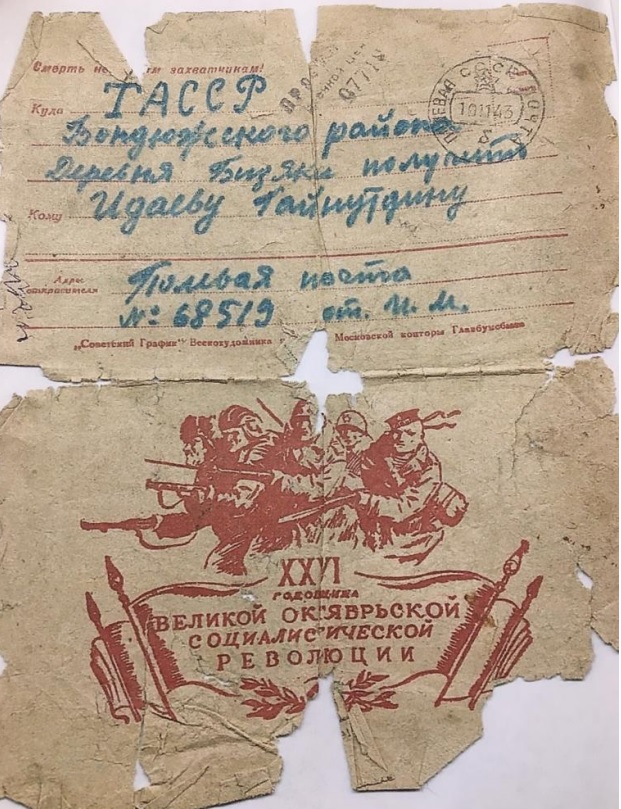 Смерть захватчикам!
ПОЛЕВАЯ ПОЧТА
СССР
10 11 43
б
07718
Куда ТАССР
Бондюжского района
Деревня Бизяки получить
Кому Идаеву Гайнутдину
Адрес отправителя Полевая почта
№ 68519 от. И. М.
„Советский График" Всекохудожника Московской конторы Главбумсбыта
XXVI
ГОДОВЩИНА
ВЕЛИКОЙ ОКТЯБРЬСКОЙ
СОЦИАЛИСТИЧЕСКОЙ
РЕВОЛЮЦИИ